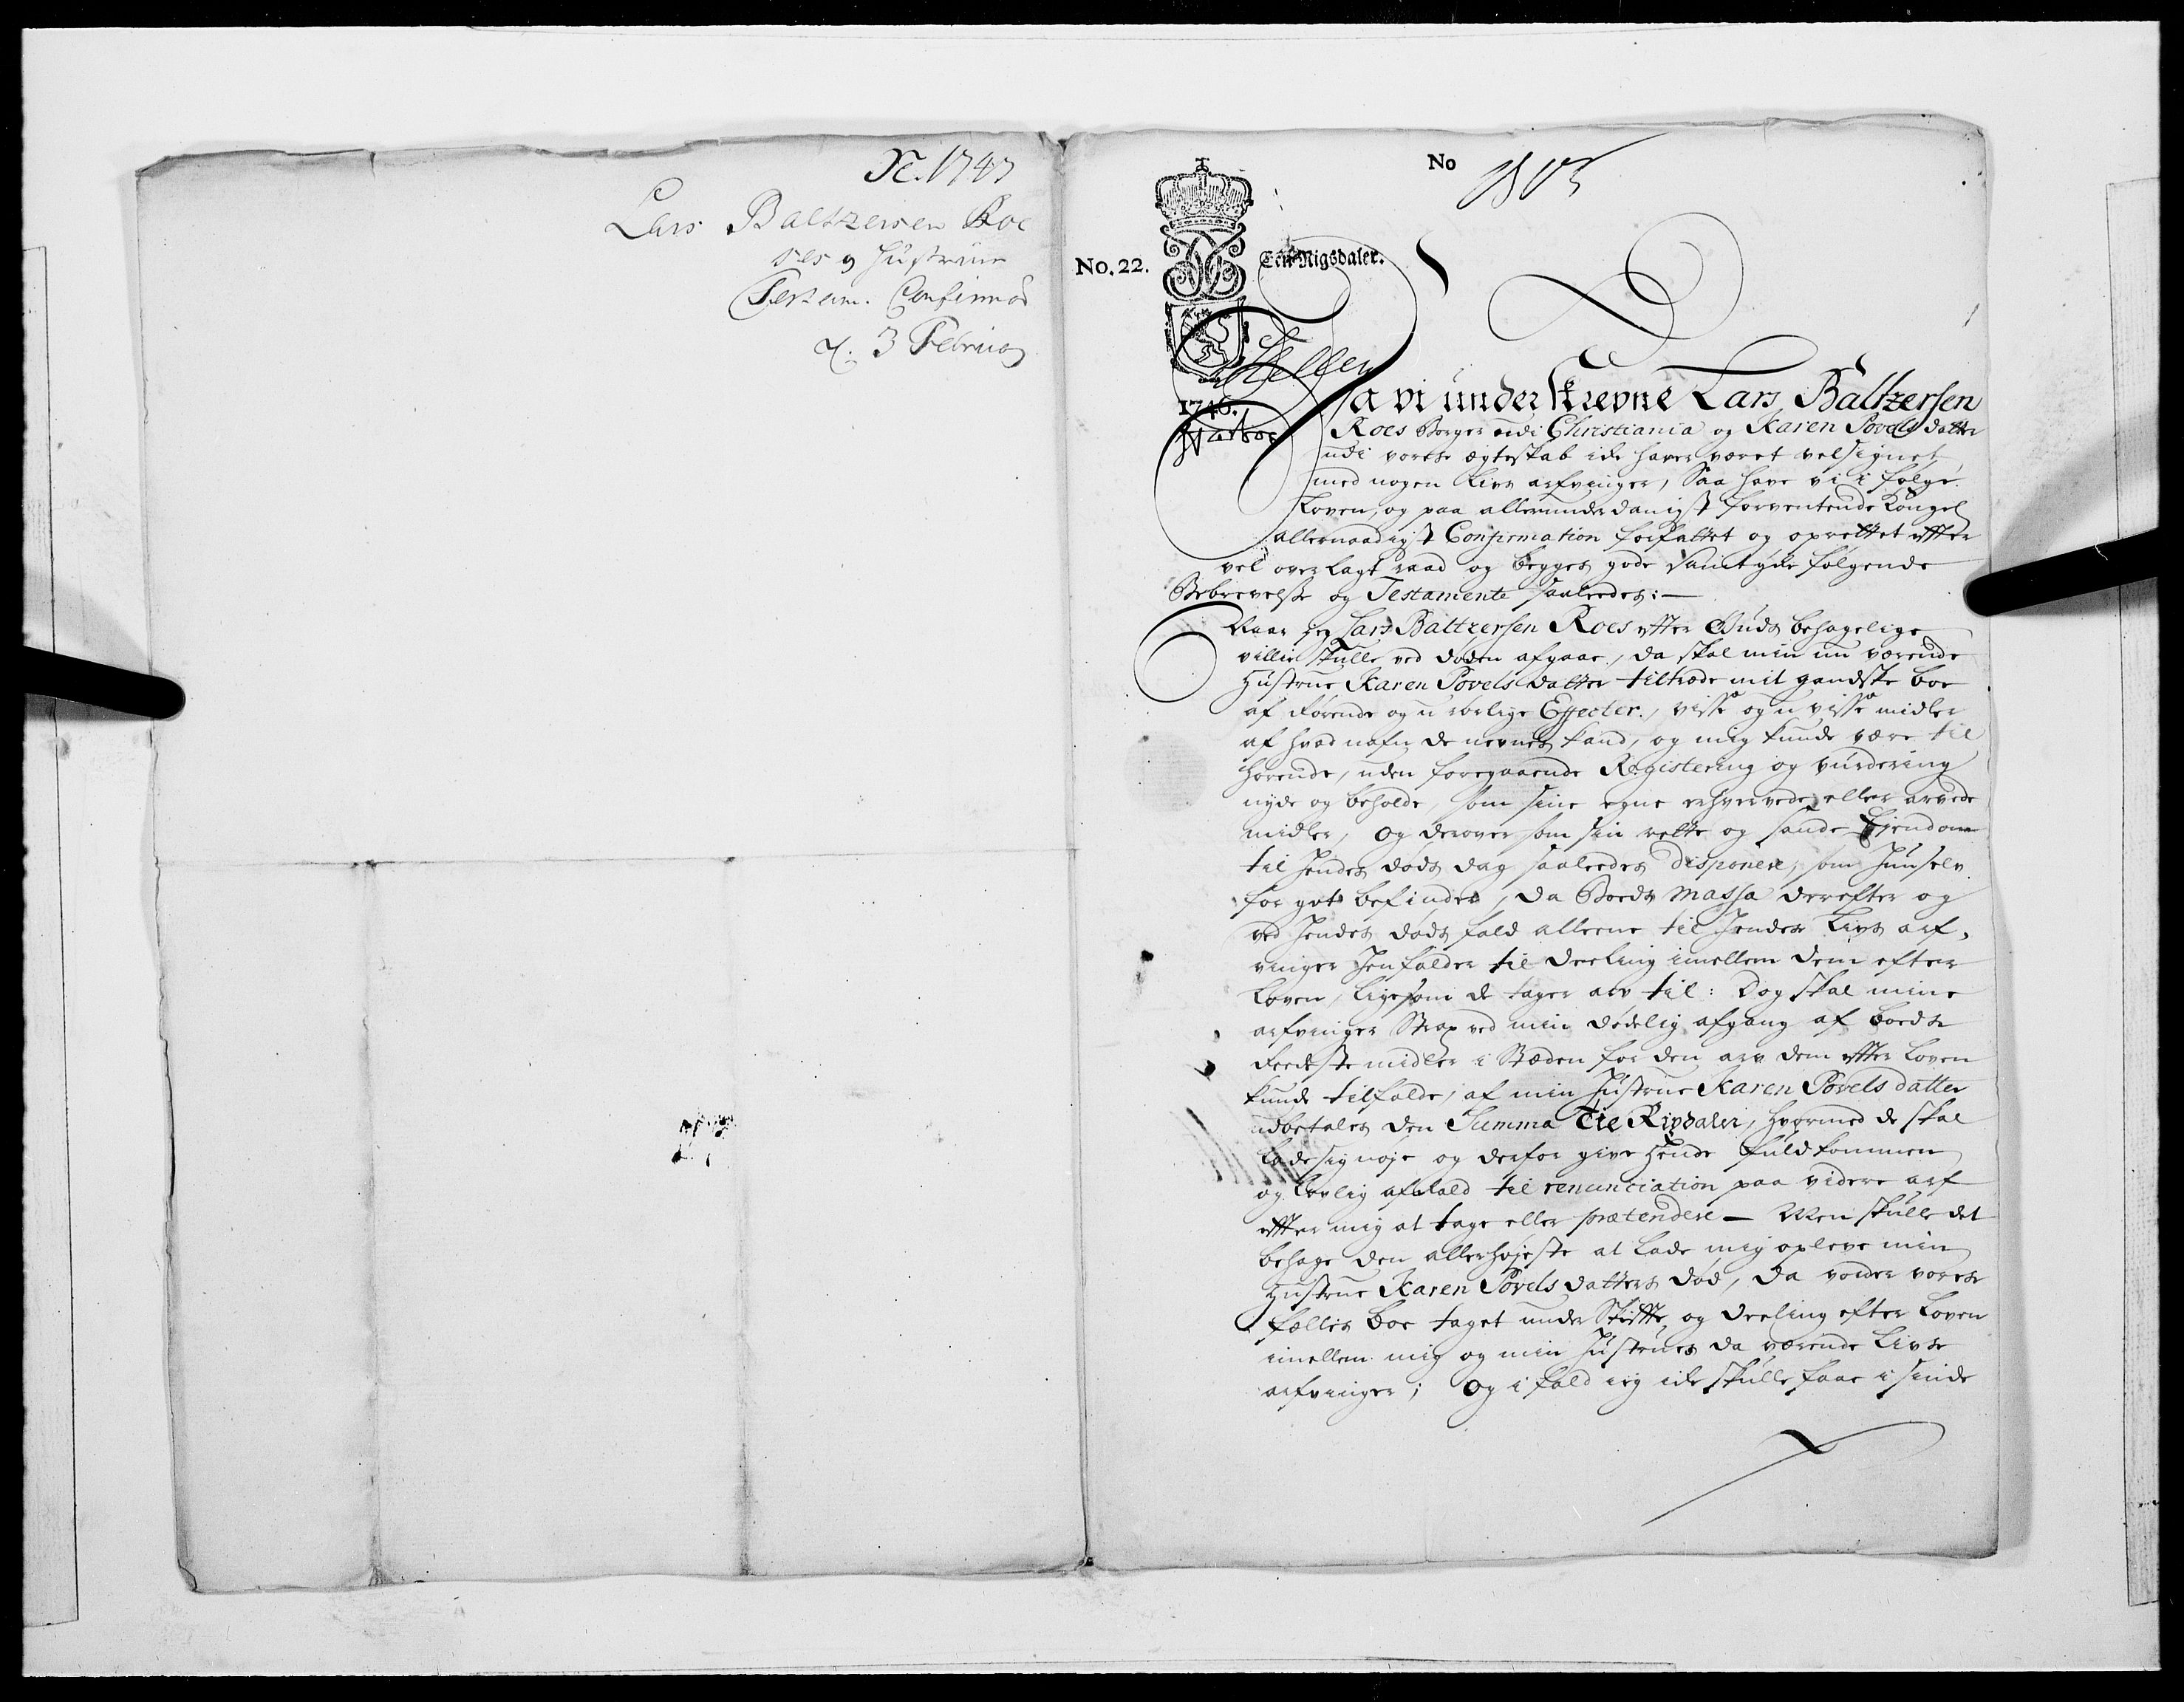 N. 1747
Lars Baltzersen Roe
ses og Hustrues
Testam. Confirmat
d. 3 Februar
No
No. 22.
Een Rigsdaler.
1746.
Da vi underskrevne Lars Baltzersen
Roes Borger udi Christiania og Karen Povels datter
udi vores ægteskab icke haver været velsignet
med nogen Livs arfvinger, Saa have vi i følge
Loven, og paa allerunderdanigst forventende Kongel
allernaadigst Confirmation forfattet og oprettet efter
vel overlagt raad og begges gode samtycke følgende
Bebrevelse og Testamente saaledes:—
Naar jeg Lars Baltzersen Roes efter Guds behagelige
villie skulle ved døden afgaae, da skal min nu værende
Hustrue Karen Povels datter tiltræde mit gandske boe
af rørende og u rørlige Effecter, visse og u visse midler
af hvad nafn de nevnes kand, og mig kunde være til
hørende, uden foregaaende Registering og vurdering
nyde og beholde, som sine egne erhvervede eller arvede
midler, og derover som sin rette og sande Ejendom
til hendes døds dag saaledes disponere, som hun selv
for got befinder, da Boeds Massa derefter og
ved hendes døds fald alleene til hendes Livs arf-
vinger henfalder til deeling imellem dem efter
Loven, ligesom de tager arv til: Dog skal mine
arfvinger Strax ved min dødelig afgang af boeds
Reedeste midler i Stæden for den arv dem efter Loven
kunde tilfalde, af min Hustrue Karen Povels datter
udbetales den Summa Tie Rixdaler, hvormed de skal
lade sig nøje og derfor give hende fuldkommen
og lovlig afkald til renunciation paa videre arf
efter mig at tage eller prætendere — Men skulle det
behage den allerhøjeste at lade mig opleve min
Hustrue Karen Povels datters død, da vorder vores
fælles boe taget under Skifte og deeling efter Loven
imellem mig og min Hustrues da værende Livs
arfvinger; Og i fald ieg icke skulle faae i sinde